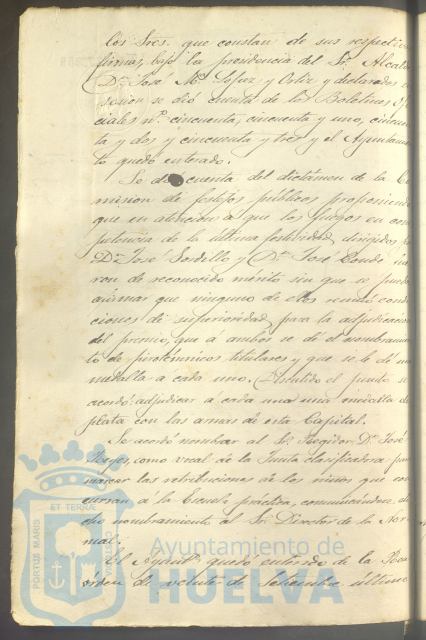 los Sres. que constan de sus respectiva
firmas, bajo la presidencia del Sr. Alcald
Dn. José Ma. López y Ortiz y declarada
sesion se dió cuenta de los Boletines Ofi
ciales nos. cincuenta, cincuenta y uno, cincuen
ta y dos y cincuenta y tres y el Ayuntamien
to quedó enterado.
Se dió cuenta del dictámen de la Co
mision de festejos públicos proponiendo
que en atencion a que los fuegos en com
petencia de la última festividad, dirigidos p
Dn. José Sordillo y Dn. José Conde fue
ron de reconocido mérito sin que se pueda
que ninguno de ellos condi
ciones de inferioridad para la adjudicacion
del premio, que á ambos se dé el nombramien
to de pirotécnicos titulares y que se le dé una
medalla á cada uno. Discutido el punto se
acordó adjudicar á cada uno una medalla de
plata con las armas de esta Capital.
Se acordó nombrar al Sr. Regidor Dn. José
Reyes, como vocal de la Junta clasificadora para
marcar las retribuciones de los niños que con
curran á la Escuela práctica, comunicándose di
cho nombramiento al Sr. Director de la Nor
mal.
El Ayuntº. quedó enterado de la Real
órden de veinte de Setiembre último
PORTUS MARIS
ET TERRÆ
CUSTODIA
Ayuntamiento de
HUELVA